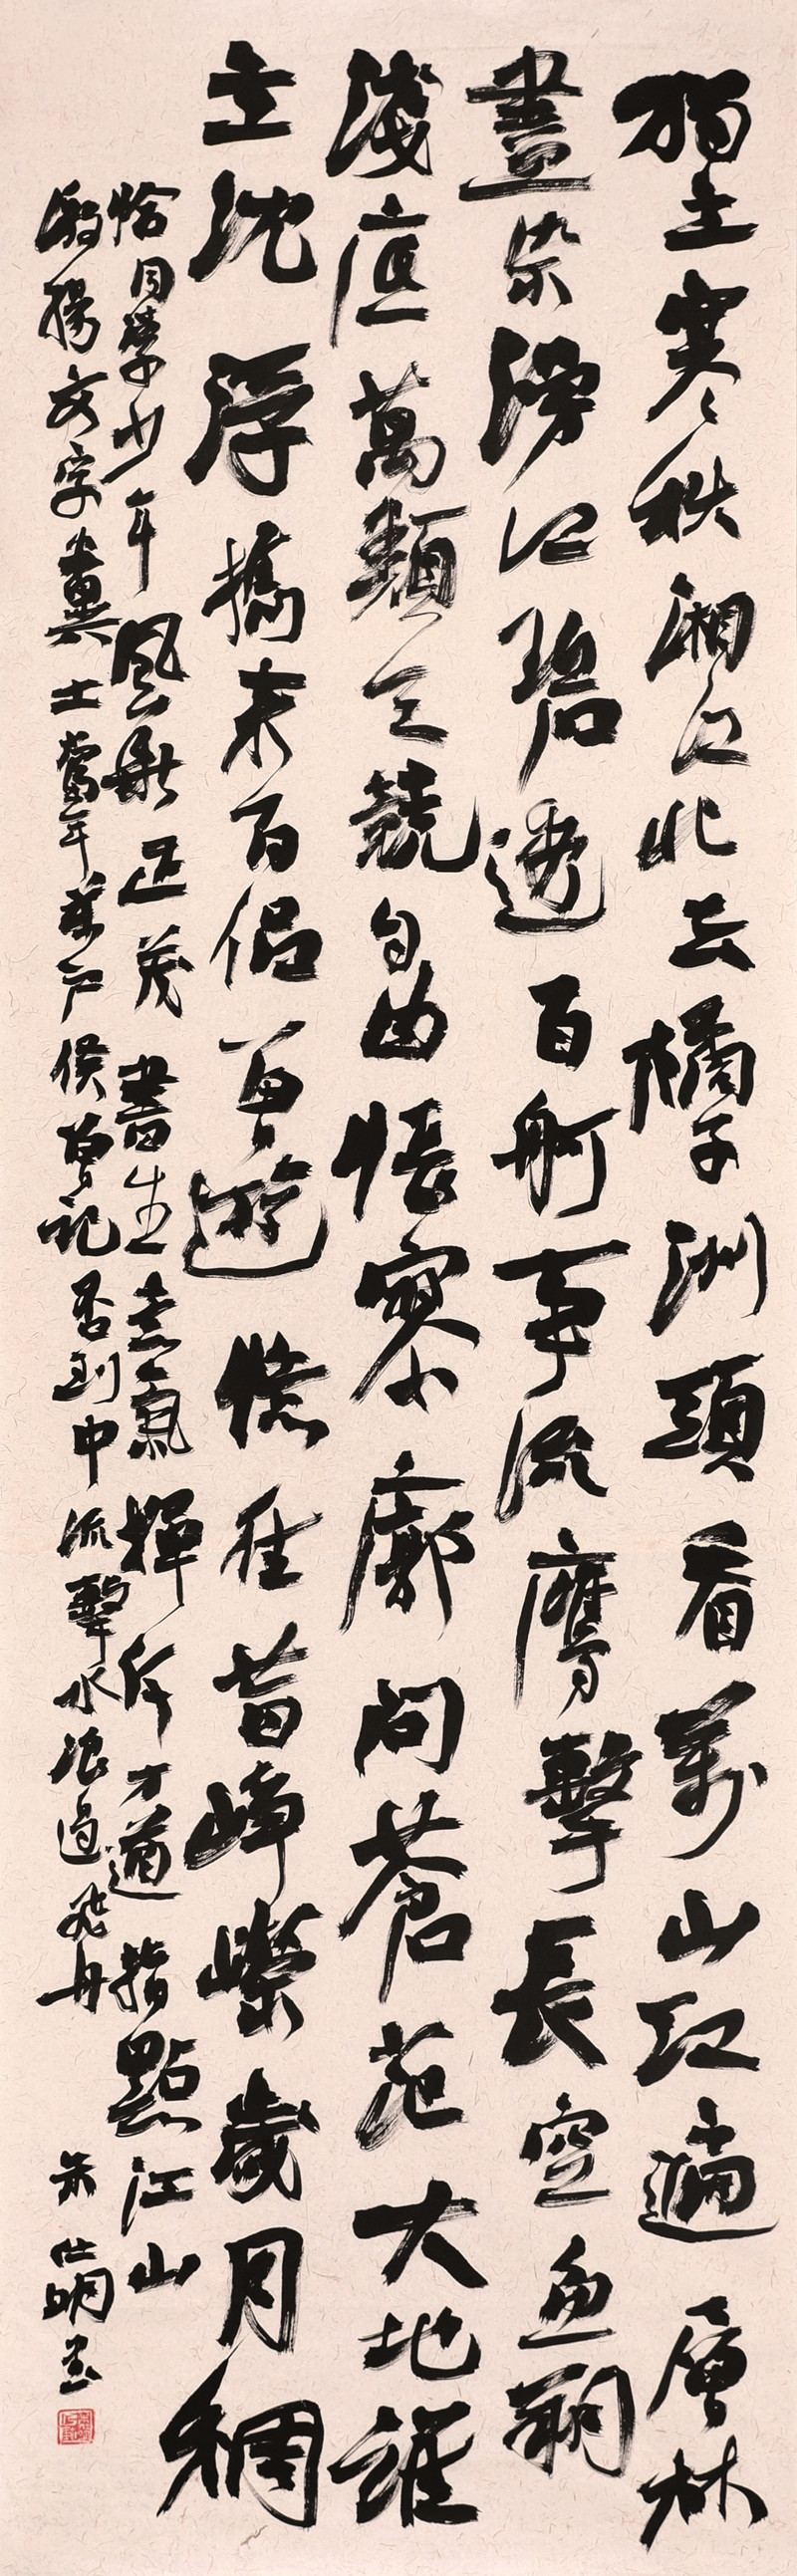 獨立寒秋湘江北去橘子洲頭看萬山红遍層林
盡染漫江碧透百舸争流鷹擊長空魚翔
淺底萬類天競自由悵寥廓問蒼茫大地誰
主沈浮攜来百侣曾遊憶往昔崢嶸歲月稠
恰同學少年風華正茂書生意氣揮斥方遒指點江山
激揚文字糞土當年萬户侯曾記否到中流擊水浪遏飛舟 朱仕明書